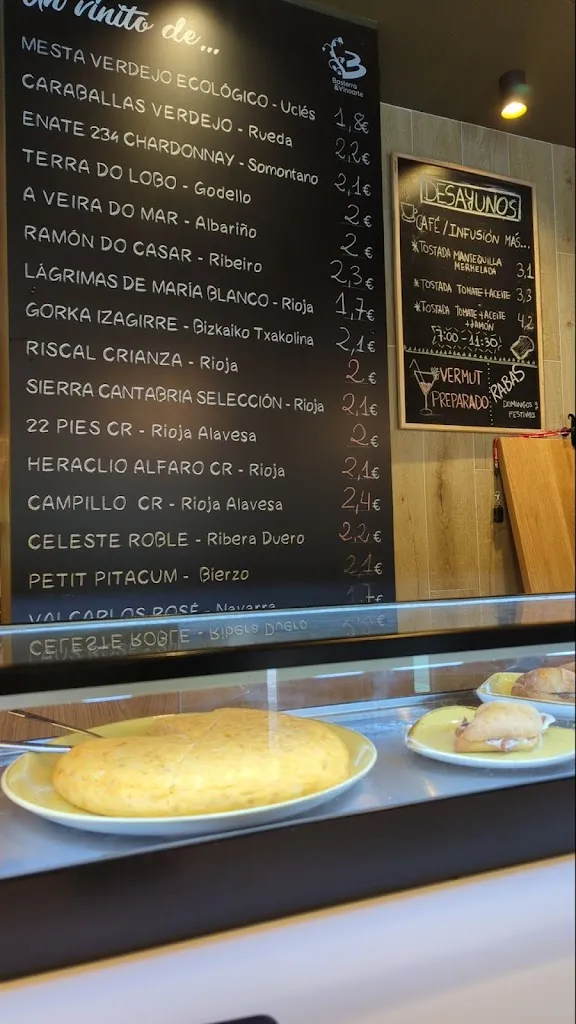 un vinito de...
B
Basterra
&Vinoarte
MESTA VERDEJO ECOLÓGICO - Uclés 1,8€
CARABALLAS VERDEJO - Rueda 2,2€
ENATE 234 CHARDONNAY - Somontano 2,1€
TERRA DO LOBO - Godello 2€
A VEIRA DO MAR - Albariño 2€
RAMÓN DO CASAR - Ribeiro 2,3€
LÁGRIMAS DE MARÍA BLANCO - Rioja 1,7€
GORKA IZAGIRRE - Bizkaiko Txakolina 2,1€
RISCAL CRIANZA - Rioja 2€
SIERRA CANTABRIA SELECCIÓN - Rioja 2,1€
22 PIES CR - Rioja Alavesa 2€
HERACLIO ALFARO CR - Rioja 2,1€
CAMPILLO CR - Rioja Alavesa 2,4€
CELESTE ROBLE - Ribera Duero 2,2€
PETIT PITACUM - Bierzo 2,1€
VALCARLOS ROSÉ - Navarra 1,7€
DESAYUNOS
CAFÉ/INFUSIÓN MÁS...
*TOSTADA MANTEQUILLA
MERMELADA 3,1
*TOSTADA TOMATE+ACEITE 3,3
*TOSTADA TOMATE+ACEITE
+JAMÓN 4,2
7:00 - 11:30
*VERMUT
PREPARADO
RABAS
DOMINGOS y
FESTIVOS